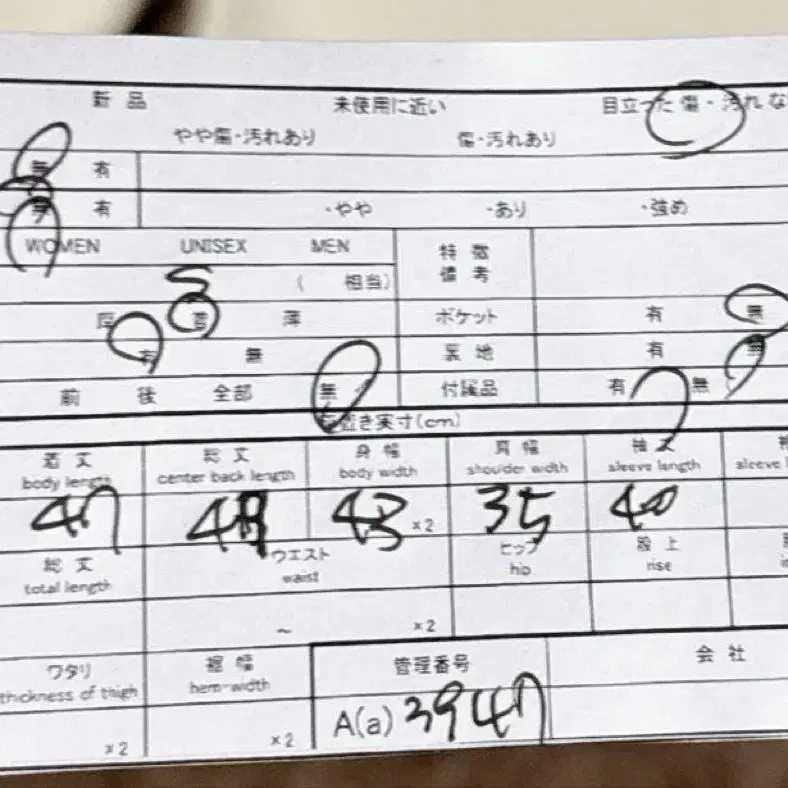 新品 未使用に近い 目立った傷・汚れな
やや傷・汚れあり 傷・汚れあり
無 有
無 有 ・やや ・あり ・強め
WOMEN UNISEX MEN 特徴
備考
S ( 相当)
厚 普 薄 ポケット 有 無
有 無 裏地 有 無
前 後 全部 無 付属品 有 無
置き実寸(cm)
着丈 総丈 身幅 肩幅 袖丈
body length center back length body width shoulder width sleeve length sleeve l
47 43 ×2 35 40
総丈 ウエスト ヒップ 股上
total length waist hip rise
~ ×2
ワタリ 裾幅 管理番号 会社
thickness of thigh hem-width
×2 ×2 A(a) 3947